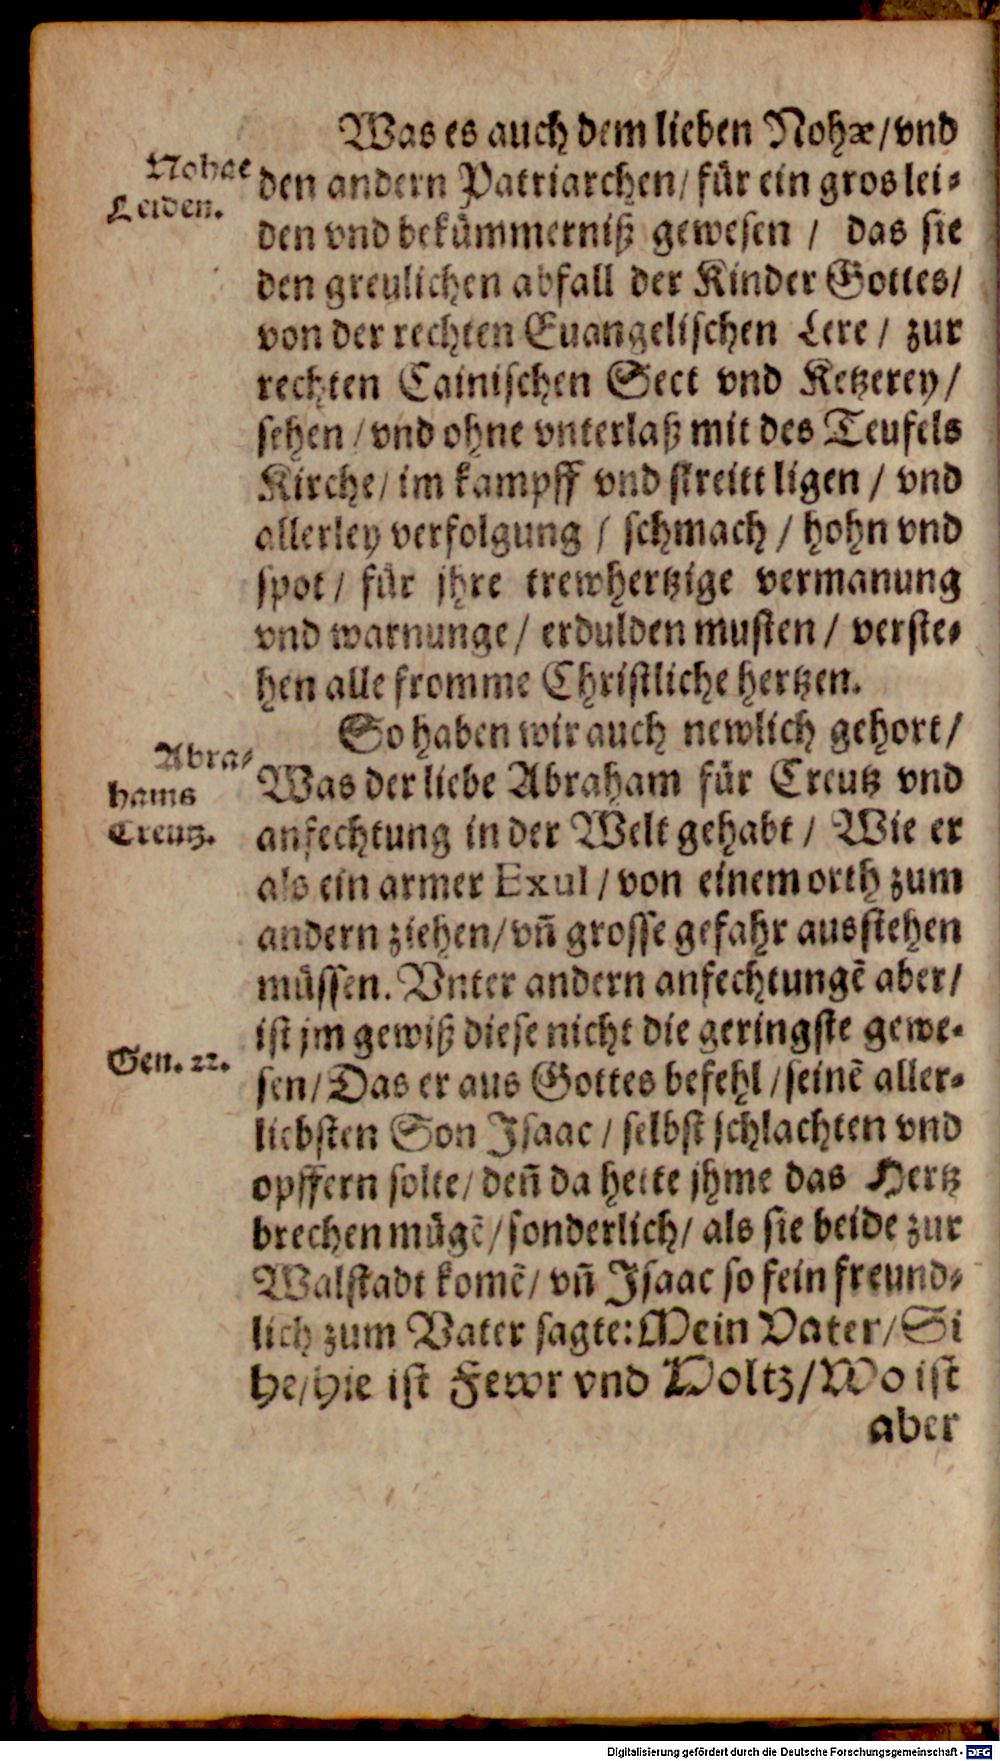 Was es auch dem lieben Nohæ/ vnd
Nohae
Leiden.
den andern Patriarchen/ für ein gros lei-
den vnd bekümmerniß gewesen / das sie
den greulichen abfall der Kinder Gottes/
von der rechten Euangelischen Lere / zur
rechten Cainischen Sect vnd Ketzerey /
sehen / vnd ohne vnterlaß mit des Teufels
Kirche/ im kampff vnd streitt ligen / vnd
allerley verfolgung / schmach / hohn vnd
spot / für jhre trewhertzige vermanung
vnd warnunge / erdulden musten / verste-
hen alle fromme Christliche hertzen.
So haben wir auch newlich gehort /
Abra-
hams
Creutz.
Was der liebe Abraham für Creutz vnd
anfechtung in der Welt gehabt / Wie er
als ein armer Exul / von einem orth zum
andern ziehen/ vñ grosse gefahr ausstehen
müssen. Vnter andern anfechtungẽ aber/
ist jm gewiß diese nicht die geringste gewe-
Gen. 22.
sen/ Das er aus Gottes befehl / seinẽ aller-
liebsten Son Isaac / selbst schlachten vnd
opffern solte/ deñ da hette jhme das Hertz
brechen mügẽ/ sonderlich/ als sie beide zur
Walstadt komẽ/ vñ Isaac so fein freund-
lich zum Vater sagte: Mein Vater/ Si
he/ hie ist Fewr vnd Holtz/ Wo ist
aber
Digitalisierung gefördert durch die Deutsche Forschungsgemeinschaft - DFG